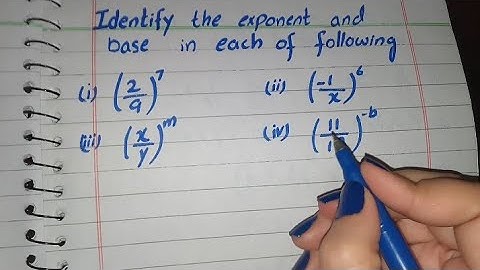 Identify the exponent and
base in each of following
(i) (2/9)^7 (ii) (-1/x)^6
(iii) (x/y)^m (iv) (11/1)^-b